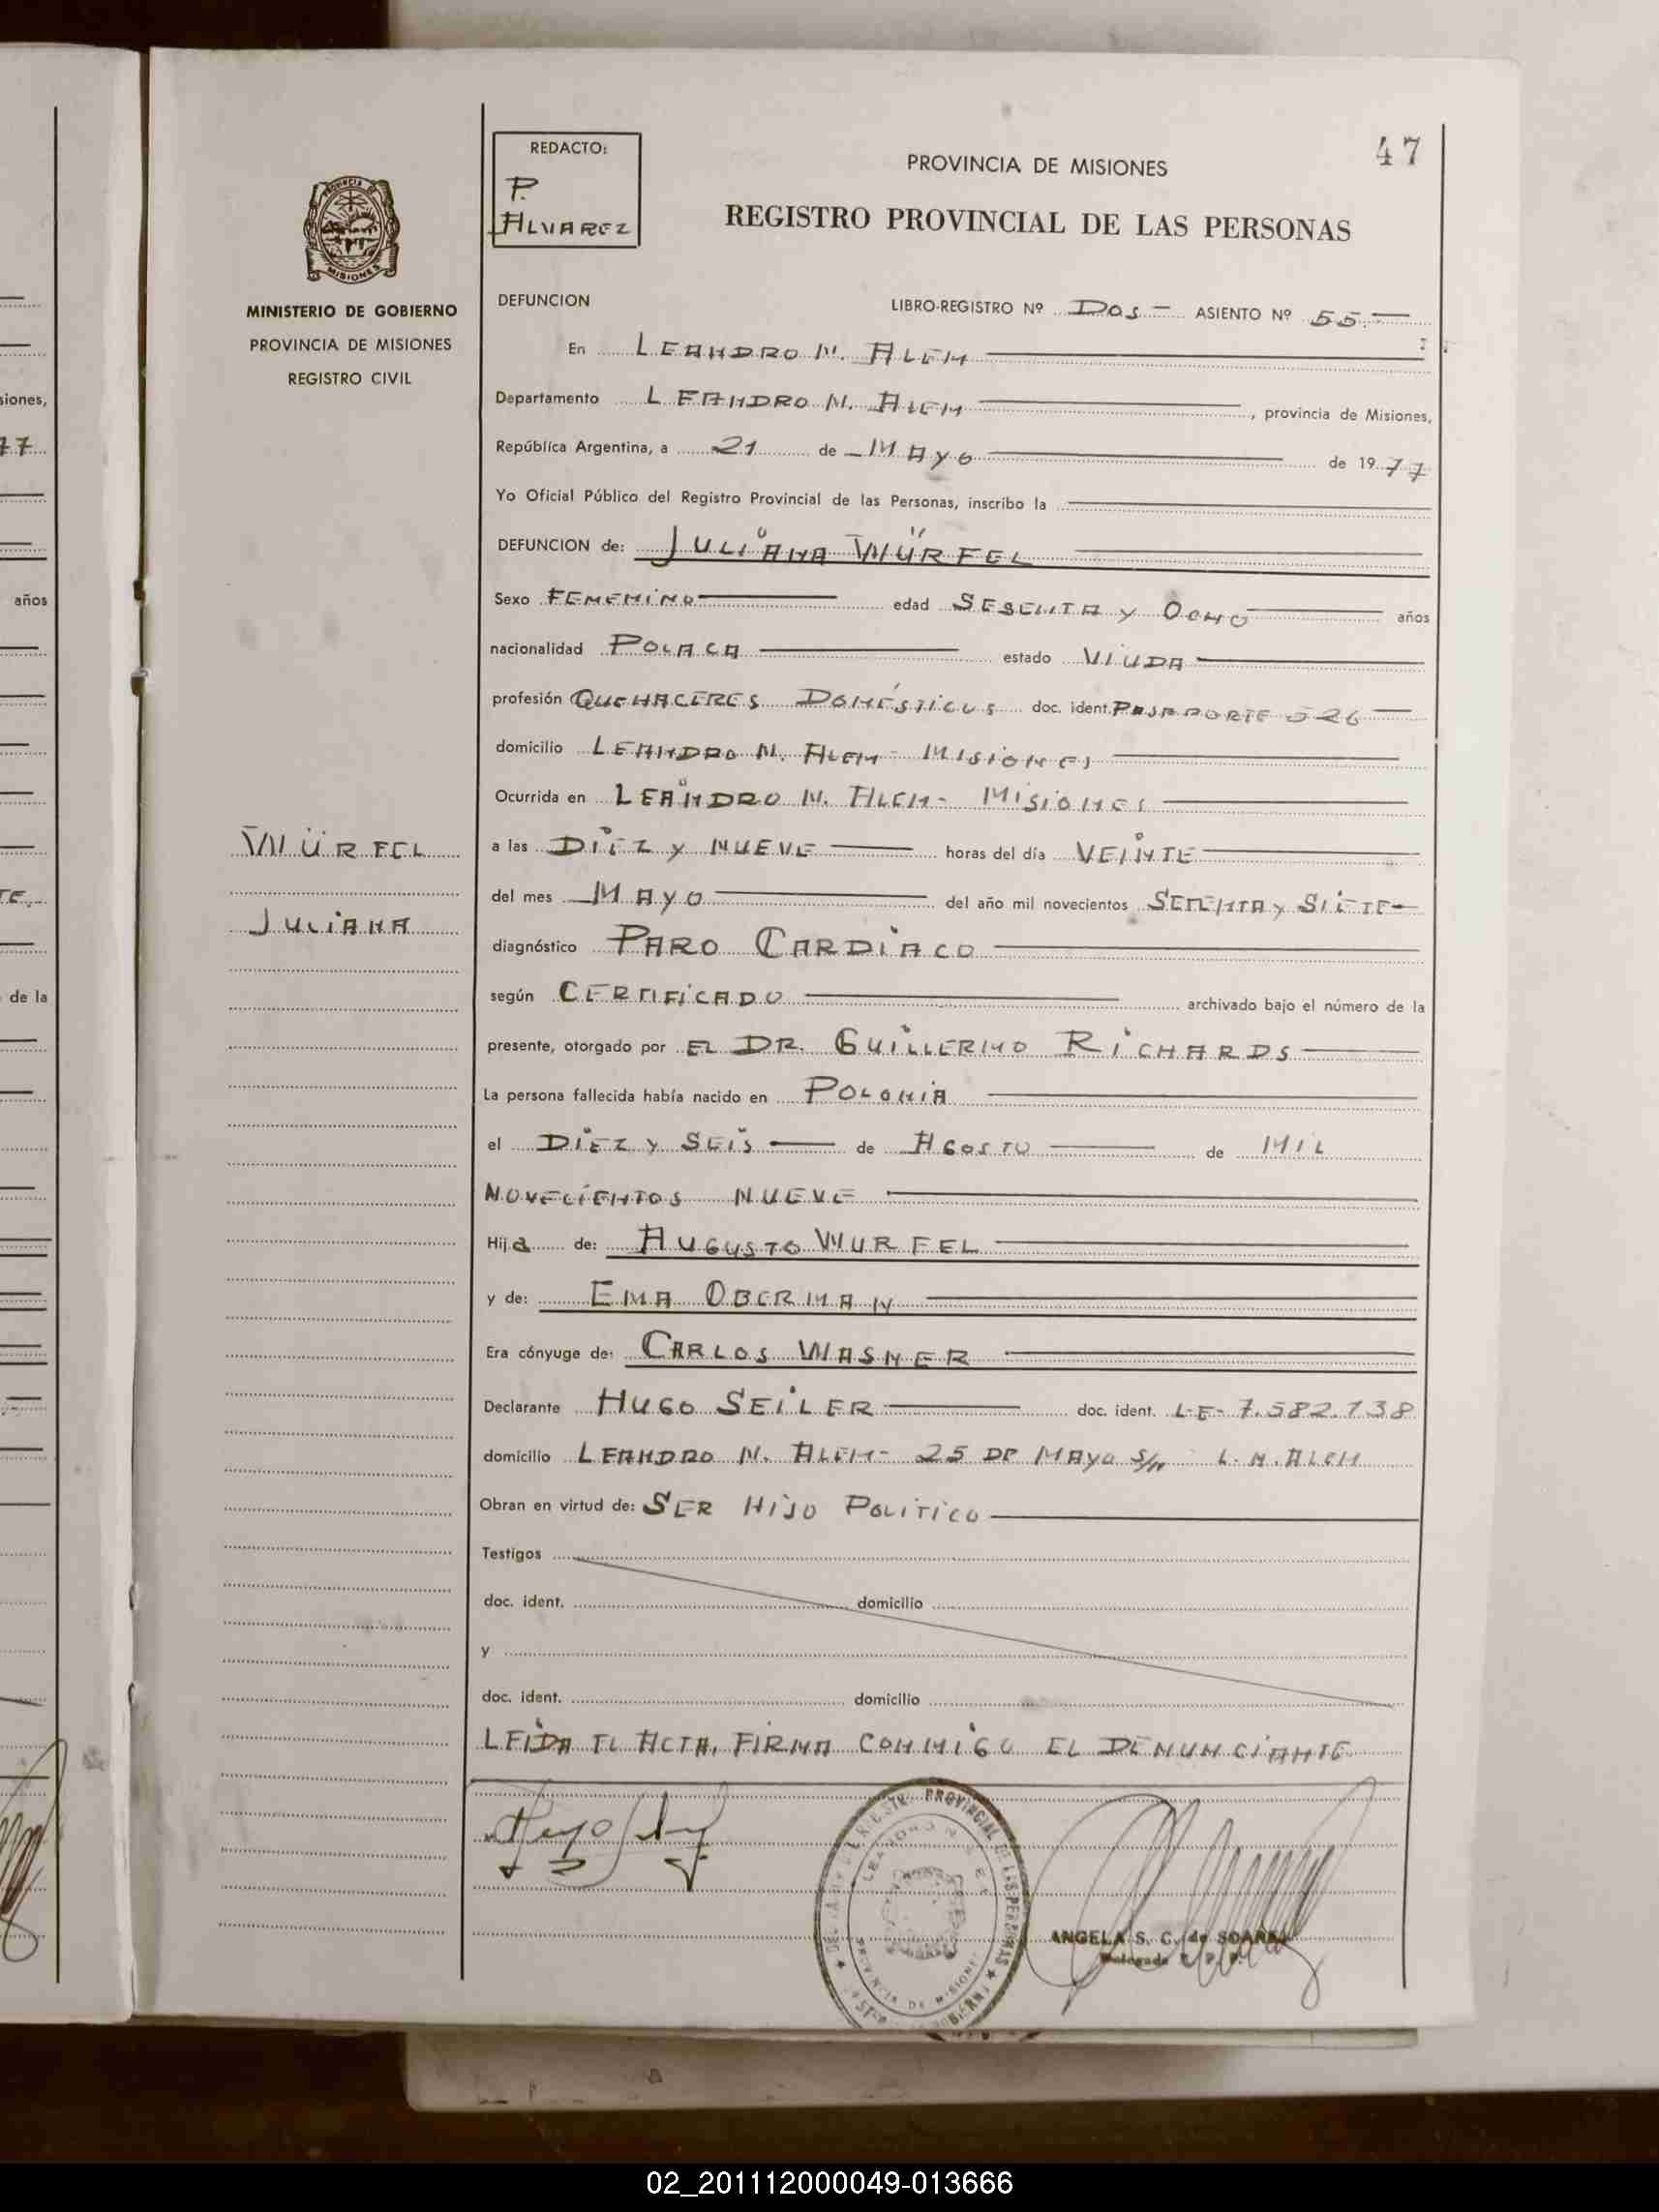 47
REDACTO:
P.
ALVAREZ
PROVINCIA DE MISIONES
REGISTRO PROVINCIAL DE LAS PERSONAS
PROVINCIA DE
MISIONES
MINISTERIO DE GOBIERNO
PROVINCIA DE MISIONES
REGISTRO CIVIL
WÜRFEL
JULIANA
DEFUNCION LIBRO-REGISTRO Nº DOS - ASIENTO Nº 55.-
En LEANDRO N. ALEM
Departamento LEANDRO N. ALEM, provincia de Misiones,
República Argentina, a 21 de MAYO de 1977
Yo Oficial Público del Registro Provincial de las Personas, inscribo la
DEFUNCION de: JULIANA WÜRFEL
Sexo FEMENINO edad SESENTA Y OCHO años
nacionalidad POLACA estado VIUDA
profesión QUEHACERES DOMÉSTICOS doc. ident. PASAPORTE 526
domicilio LEANDRO N. ALEM - MISIONES
Ocurrida en LEANDRO N. ALEM - MISIONES
a las DIEZ Y NUEVE horas del día VEINTE
del mes MAYO del año mil novecientos SETENTA Y SIETE-
diagnóstico PARO CARDIACO
según CERTIFICADO archivado bajo el número de la
presente, otorgado por EL DR. GUILLERMO RICHARDS
La persona fallecida había nacido en POLONIA
el DIEZ Y SEIS de AGOSTO de MIL
NOVECIENTOS NUEVE
Hija de: AUGUSTO WURFEL
y de: EMA OBERMAN
Era cónyuge de: CARLOS WASNER
Declarante HUGO SEILER doc. ident. L-E- 7.582.138
domicilio LEANDRO N. ALEM - 25 DE MAYO S/N - L. N. ALEM
Obran en virtud de: SER HIJO POLITICO
Testigos
doc. ident. domicilio
y
doc. ident. domicilio
LEIDA EL ACTA, FIRMA CONMIGO EL DENUNCIANTE
ANGELA S. C. de SOARES
siones,
77
años
TE.-
de la
02_201112000049-013666